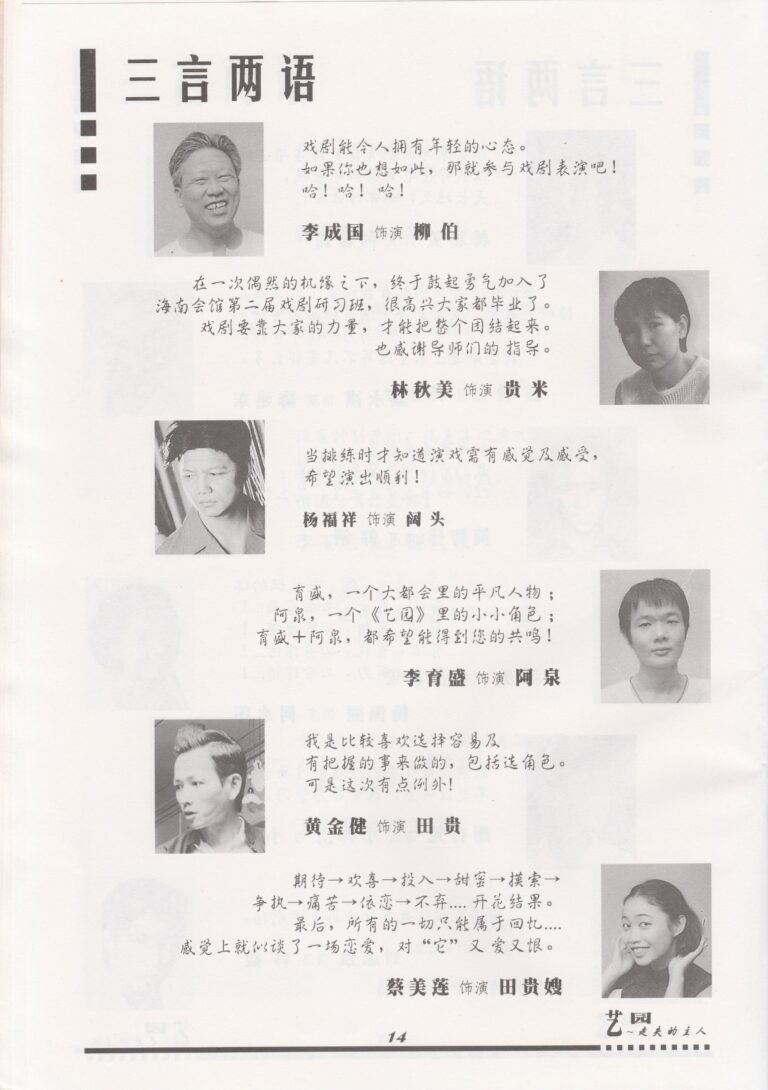 三言两语
戏剧能令人拥有年轻的心态。
如果你也想如此，那就参与戏剧表演吧！
哈！哈！哈！
李成国 饰演 柳伯
在一次偶然的机缘之下，终于鼓起勇气加入了
海南会馆第二届戏剧研习班，很高兴大家都毕业了。
戏剧要靠大家的力量，才能把整个团结起来。
也感谢导师们的指导。
林秋美 饰演 贵米
当排练时才知道演戏需有感觉及感受，
希望演出顺利！
杨福祥 饰演 阔头
育盛，一个大都会里的平凡人物；
阿泉，一个《艺园》里的小小角色；
育盛＋阿泉，都希望能得到您的共鸣！
李育盛 饰演 阿泉
我是比较喜欢选择容易及
有把握的事来做的，包括选角色。
可是这次有点例外！
黄金健 饰演 田贵
期待→欢喜→投入→甜蜜→摸索→
争执→痛苦→依恋→不弃....开花结果。
最后，所有的一切只能属于回忆....
感觉上就似谈了一场恋爱，对“它”又爱又恨。
蔡美莲 饰演 田贵嫂
艺园
~走失的主人
14